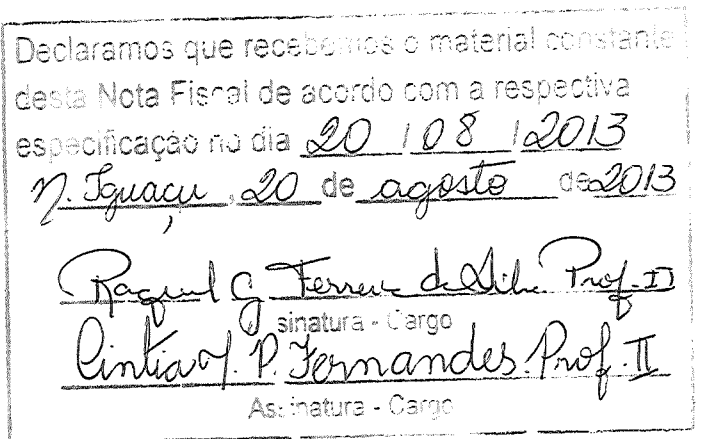 Declaramos que recebemos o material constante
desta Nota Fiscal de acordo com a respectiva
especificação no dia 20 / 08 / 2013
N. Iguaçu, 20 de agosto de 2013
Raquel G Ferreira da Silva Prof. II
sinatura - Cargo
Cintia Y. P. Fernandes. Prof. II
Assinatura - Cargo